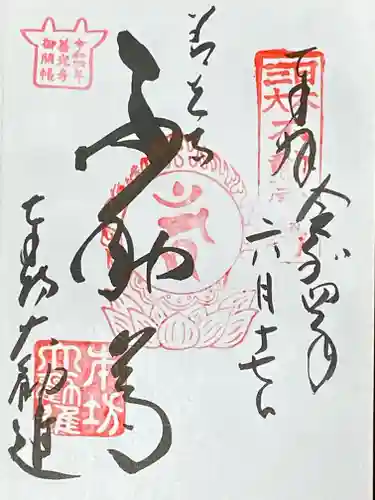 奉拝
令和四年
六月十七日
日本三大不動
善光寺
不動尊
大勧進
本坊
大勧進
令和四年
善光寺
御開帳